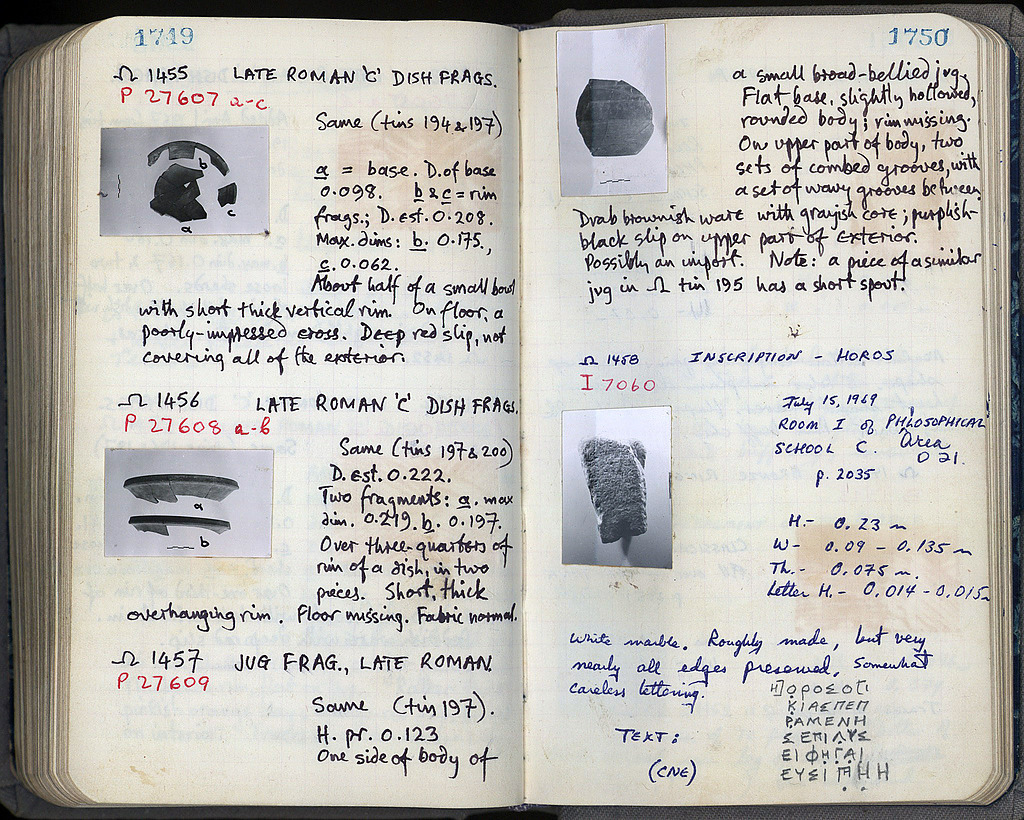 1749
Ω 1455 LATE ROMAN 'C' DISH FRAGS.
P 27607 a-c
Same (tins 194 & 197)
b
c
a
a = base. D. of base
0.098. b & c = rim
frags.; D. est. 0.208.
Max. dims: b. 0.175,
c. 0.062.
About half of a small bowl
with short thick vertical rim. On floor, a
poorly-impressed cross. Deep red slip, not
covering all of the exterior.
Ω 1456 LATE ROMAN 'C' DISH FRAGS.
P 27608 a-b
Same (tins 197 & 200)
a
b
D. est. 0.222.
Two fragments: a. max
dim. 0.219. b. 0.197.
Over three-quarters of
rim of a dish, in two
pieces. Short, thick
overhanging rim. Floor missing. Fabric normal.
Ω 1457 JUG FRAG., LATE ROMAN.
P 27609
Same (tin 197).
H. pr. 0.123
One side of body of
1750
a small broad-bellied jug.
Flat base, slightly hollowed,
rounded body; rim missing.
On upper part of body, two
sets of combed grooves, with
a set of wavy grooves between
Drab brownish ware with grayish core; purplish-
black slip on upper part of exterior.
Possibly an import. Note: a piece of a similar
jug in Ω tin 195 has a short spout.
Ω 1458 INSCRIPTION - HOROS
I 7060
July 15, 1969
ROOM I of PHILOSOPHICAL
SCHOOL C. Area
O 21.
p. 2035
H.- 0.23 m
W- 0.09 - 0.135 m
Th.- 0.075 m.
Letter H.- 0.014 - 0.015m
White marble. Roughly made, but very
nearly all edges preserved. Somewhat
careless lettering.
TEXT:
(CNE)
ΗΟΡΟΣΟΤΙ
ΚΙΑΣΠΕΠ
ΡΑΜΕΝΗ
ΣΕΠΙΛΥΣ
ΕΙΦΗΓΑΙ
ΕΥΣΙΠΗΗ